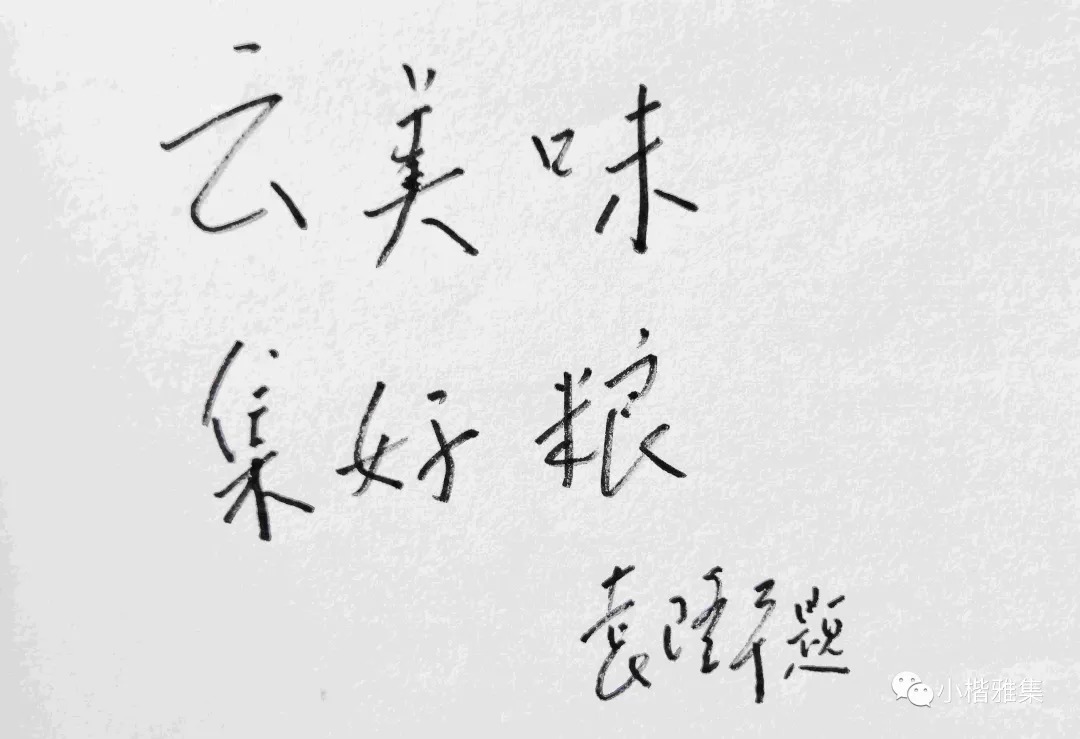 云美味
集好粮
袁隆平题
小楷雅集